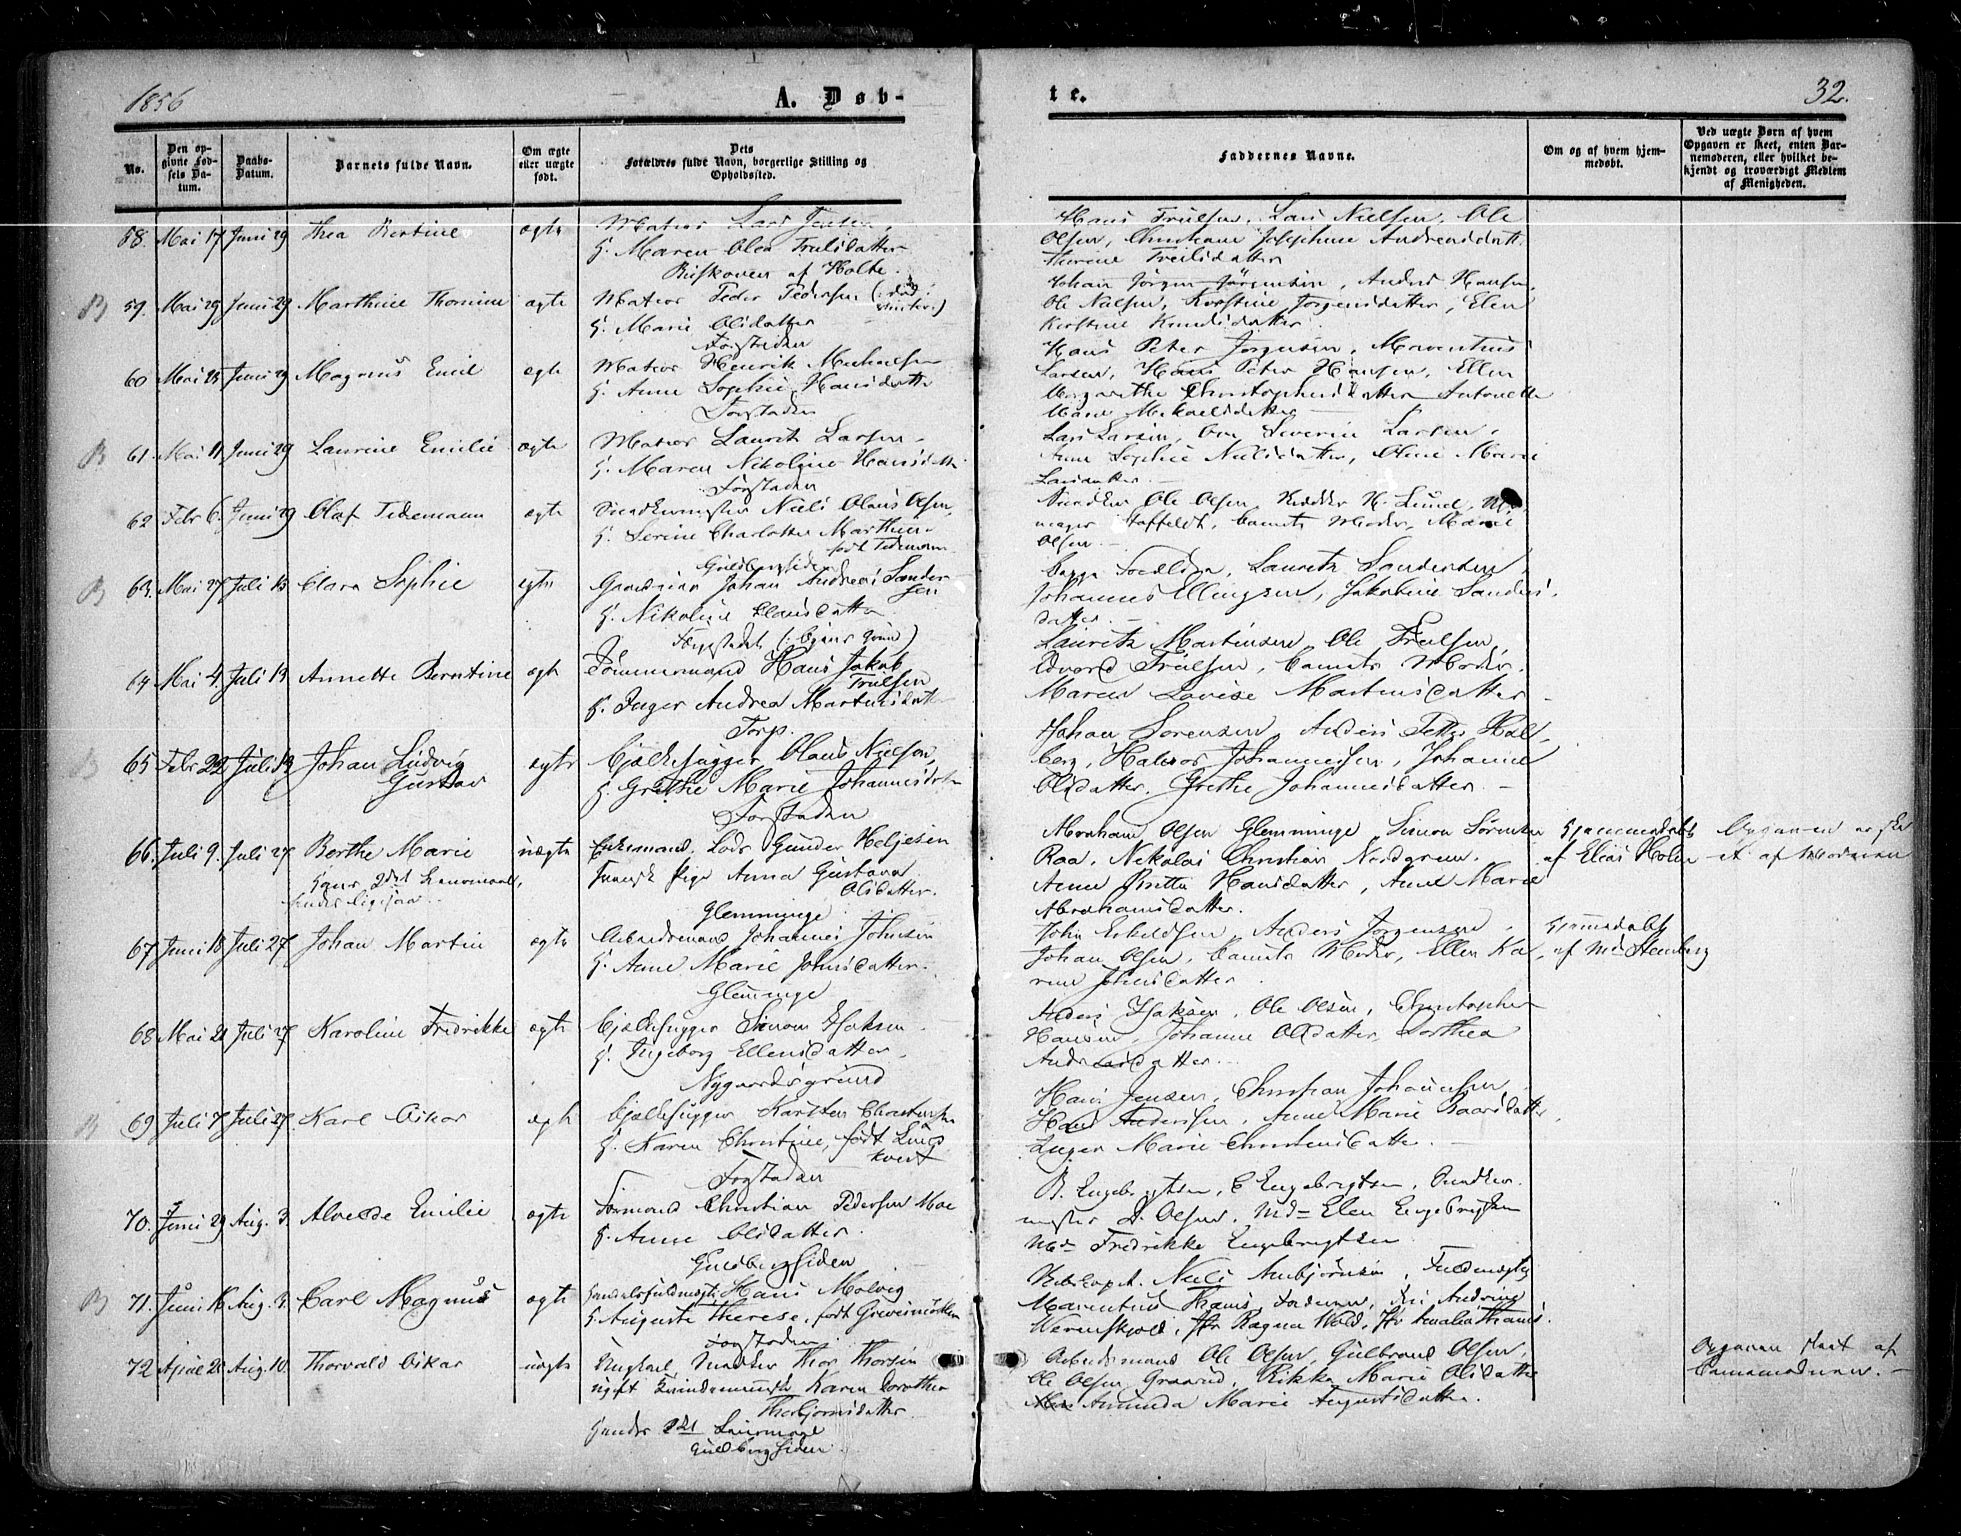 1856
A. Døb-
te.
32.
No.
Den op-
givne Fød-
sels Da-
tum.
Daabs-
Datum.
Barnets fulde Navn.
Om ægte
eller uægte
født.
Dets
Forældres fulde Navn, borgerlige Stilling og
Opholdssted.
Faddernes Navne.
Om og af hvem hjem-
medøbt.
Ved uægte Børn af hvem
Opgaven er skeet, enten Bar-
nemoderen, eller hvilket be-
kjendt og troværdigt Medlem
af Menigheden.
58. Mai 17 Juni 29 Thea Bertine ægte Matros Lars Jensen,
H. Maren Olea Trulsdatter
af Holte.
Hans Trulsen, Lars Nielsen, Ole
Olsen, Christiane Josephine Andreasdatt.
Trulsdatter
B 59. Mai 29 Juni 29 Marthine Thomine ægte Matros Peder Pedersen
H. Marie Olsdatter
Forstaden
Johan Jørgen Jørgensen, Anders Hansen,
Ole Nielsen, Kirstine Jørgensdatter, Elen
Kirstine Knudsdatter
60 Mai 25 Juni 29 Magnus Emil ægte Matros Henrik Michelsen
H. Anne Sophie Hansdatter
Forstaden
Hans Peter Jørgensen, Marentius
Larsen, Hans Peter Hansen, Ellen
Margarethe Christophersdatter Antonette
Marie
B 61. Mai 11 Juni 29 Laurine Emilie ægte Matros Laurits Larsen
H. Maren Nikoline Hansdatter
Forstaden
Lars Larsen, Severin Larsen,
Anne Sophie Nielsdatter, Oline Marie
Larsdatter.
62 Febr 6. Juni 29 Olaf Tidemann ægte Snedkermester Niels Olaus Olsen,
H. Serine Charlotte Marthine
født Tidemann
Guldbergsiden
Snedker Ole Olsen, H. Lund,
Staffeldt, Barnets Moder, Marie
Olsen.
B 63. Mai 27 Juli 13 Clara Sophie ægte Gaardeier Johan Andreas Sander-
sen
H. Nikoline Olausdatter
Laurits Sandersen,
Johannes Ellingsen, Jakobine Sanders-
datter.
64 Mai 4. Juli 13 Annette Berntine ægte Tømmermand Hans Jakob
Trulsen
H. Inger Andrea Martinsdatter
Torp.
Laurits Martinsen, Ole Trulsen,
Edvard Trulsen, Barnets Moder,
Maren Lovise Martinsdatter
B 65 Febr 22 Juli 13 Johan Ludvig
Gustav ægte Bjelkehugger Olaus Nielsen,
H. Grethe Marie Johannesdatter
Forstaden
Johan Sorensen, Anders Petter Hal-
berg, Halvor Johannesen, Johanne
Olsdatter, Grethe Johannesdatter.
66. Juli 9. Juli 27 Berthe Marie uægte Enkemand, Lods Gunder Heljesen
Pige Anna Gustava
Olsdatter.
Glemminge
Hans 2det Leiermaal,
Abraham Olsen Glemminge Simon Sörensen
Raa, Nikolai Christian Nordgren.
Anne Britta Hansdatter, Anne Marie
Abrahamsdatter.
Hjemmedøbt
af Elias Holm
Opgaven er ske
et af Moderen
67 Juni 18 Juli 27. Johan Martin ægte Arbeidsmand Johannes Johnsen
H. Anne Marie Johnsdatter.
Glemminge
John Eskildsen, Anders Jørgensen,
Johan Olsen, Barnets Moder, Ellen Ka-
rine Johnsdatter.
Hjemmedøbt
af Md Stenberg
68 Mai 21 Juli 27 Karoline Fredrikke ægte Bjelkehugger Simon Isaksen
H. Ingeborg Ellensdatter,
Nygaardsgrund
Anders Isaksen, Ole Olsen, Christopher
Hansen, Johanne Olsdatter, Dorthea
Andreasdatter.
B 69 Juli 7 Juli 27. Karl Oskar ægte Bjelkehugger Karsten Christensen
H. Karen Christine, født Linds-
kvist
Forstaden
Hans Jensen, Christian Johannesen,
Hans Andersen, Anne Marie Baarsdatter,
Inger Marie Christensdatter.
70. Juni 29 Aug. 3. Alvilde Emilie ægte Formand Christian Pedersen Moe
H. Anne Olsdatter.
Guldbergsiden
B. Engebrigtsen, C Engebrigtsen, Snedker-
mester D. Olsen, Md Elen Engebrigtsen
Md Fredrikke Engebrigtsen
B 71. Juni 16 Aug. 3. Carl Magnus ægte Handelsfuldmægt. Hans Molvig
H Auguste Therese, født Grevesmöhlen
Forstaden
Niels Anbjørnsen, Fuldmægtig
Marentius Thams, Andrine
Werenskjold, Jfr Ragna Wold, Jfr Amalia Thams.
72 April 20 Aug. 10. Thorvald Oskar uægte Ungkarl Snedker Thor Thorsen
ugift Fruentimmer Karen Dorothea
Thorbjørnsdatter
Hendes 2det Leiermaal
Guldbergsiden
Arbeidsmand Ole Olsen, Gulbrand Olsen,
Ole Olsen Graarud, Rikke Marie Olsdatter
Amunda Marie Augustsdatter.
Opgaven skeet af
Barnemoderen.